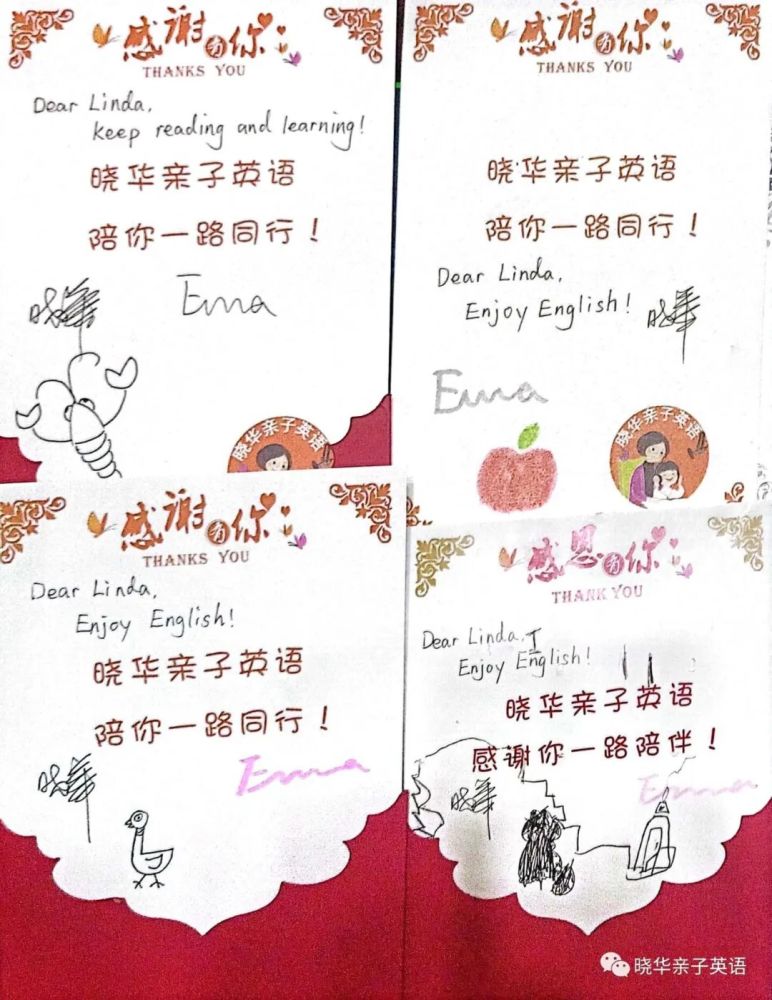 感谢有你
THANKS YOU
Dear Linda,
keep reading and learning!
晓华亲子英语
陪你一路同行！
晓华
Emma
晓华亲子英语
感谢有你
THANKS YOU
晓华亲子英语
陪你一路同行！
Dear Linda,
Enjoy English!
晓华
Emma
晓华亲子英语
感谢有你
THANKS YOU
Dear Linda,
Enjoy English!
晓华亲子英语
陪你一路同行！
晓华
Emma
感恩有你
THANK YOU
Dear Linda,
Enjoy English!
晓华亲子英语
感谢你一路陪伴！
晓华
Emma
晓华亲子英语